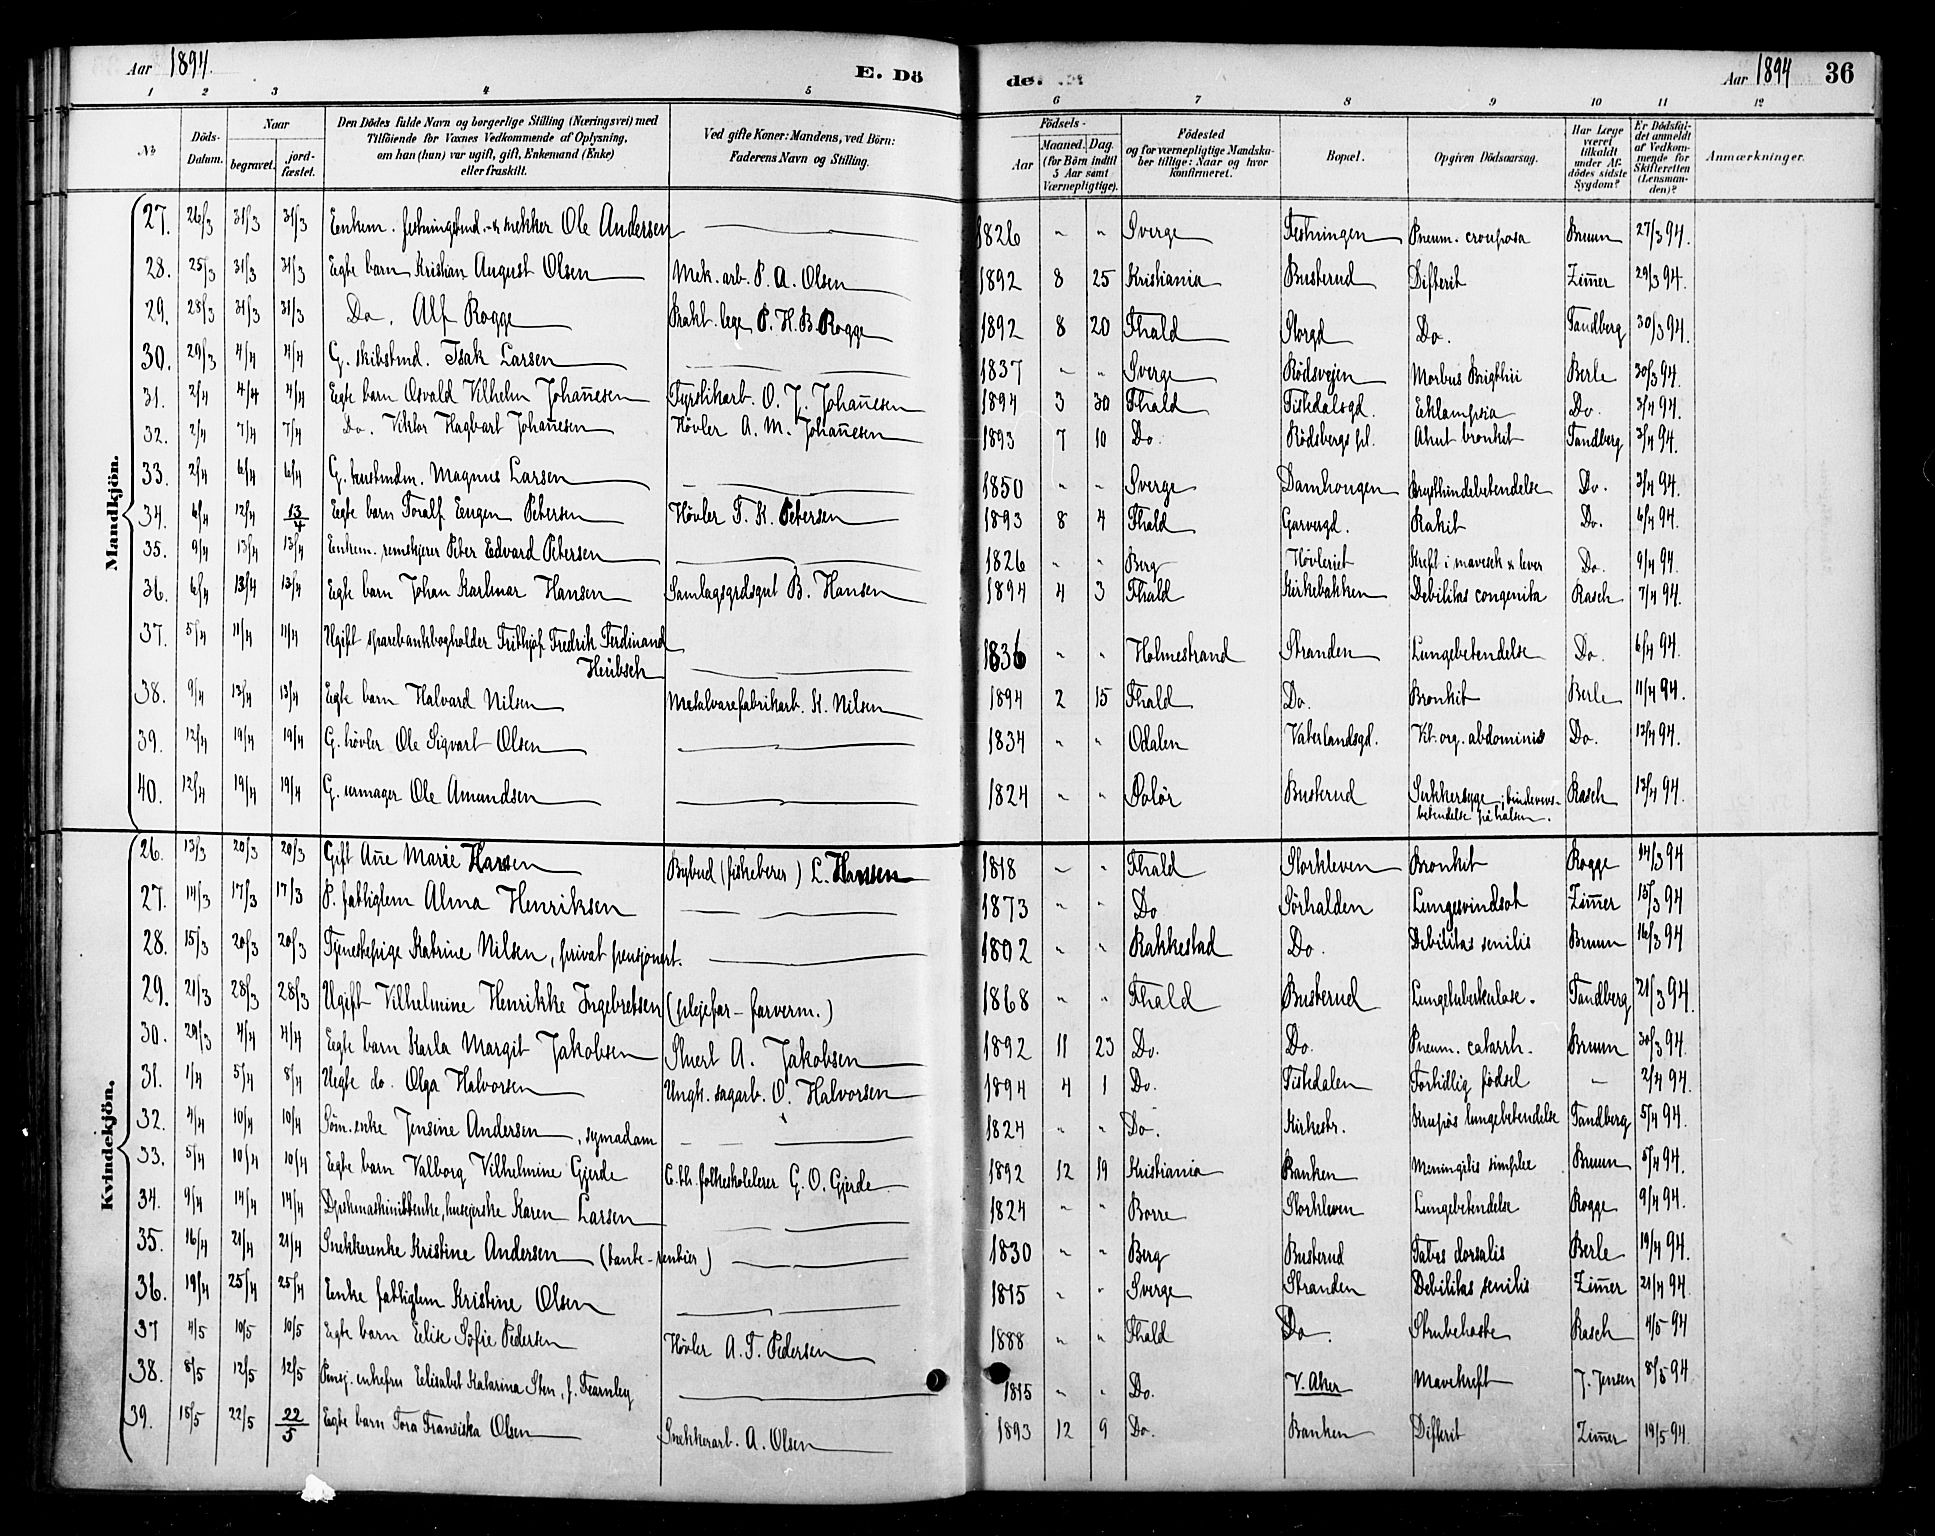 Aar 1894.
E. Döde.
Aar 1894 36
1 2 3 4 5 6 7 8 9 10 11 12
No
Döds-Datum.
Naar
begravet.
jordfæstet.
Den Dödes fulde Navn og borgerlige Stilling (Næringsvei) med Tilföiende for Voxnes Vedkommende af Oplysning, om han (hun) var ugift, gift, Enkemand (Enke) eller fraskilt.
Ved gifte Koner: Mandens, ved Börn: Faderens Navn og Stilling.
Födsels-
Aar
Maaned. Dag.
(for Börn indtil 5 Aar samt Værnepligtige).
Födested og for værnepligtige Mandskaber tillige: Naar og hvor konfirmeret.
Bopæl.
Opgiven Dödsaarsag.
Har Læge været tilkaldt under Afdödes sidste Sygdom?
Er Dödsfaldet anmeldt af Vedkommende for Skifteretten (Lensmanden)?
Anmærkninger.
Mandkjön.
27. 26/3 31/3 31/3 Enkem. festningsbud. & snekker Ole Andersen 1826 " " Sverge Festningen Pneum. crouposa Bruun 27/3 94.
28. 25/3 31/3 31/3 Egte barn Kristian August Olsen Mek. arb. P. A. Olsen 1892 8 25 Kristiania Busterud Difterit Zimer 29/3 94.
29. 28/3 31/3 31/3 Do. Alf Rogge Prakt. lege P. H. B. Rogge 1892 8 20 Fhald Storgd Do. Tandberg 30/3 94.
30. 29/3 4/4 4/4 G. skibstmd. Isak Larsen 1837 " " Sverge Rödsvejen Morbus Brigthii Berle 30/3 94.
31. 2/4 4/4 4/4 Egte barn Osvald Vilhelm Johañesen Fyrstikarb. O. J. Johañesen 1894 3 30 Fhald Tistedalsgd. Eklampsia Do. 3/4 94.
32. 2/4 7/4 7/4 Do. Viktor Hagbart Johañesen Hövler A. M. Johañesen 1893 7 10 Do. Rödsbergs pl. Akut bronkit Tandberg 3/4 94.
33. 2/4 6/4 6/4 G. Magnus Larsen 1850 " " Sverge Damhougen Brysthindebetendelse Do. 3/4 94.
34. 6/4 12/4 13/4 Egte barn Toralf Eugen Petersen Hövler T. K. Petersen 1893 8 4 Fhald Garvergd. Rakit Do. 6/4 94.
35. 9/4 13/4 13/4 Enkem. remskjerer Peter Edvard Petersen 1826 " " Berg Hövleriet Kreft i mavesek & lever Do. 9/4 94.
36. 6/4 13/4 13/4 Egte barn Johan Karlmar Hansen Samlagsgrdsgut B. Hansen 1894 4 3 Fhald Kirkebakken Debilitas congenita Rasch 7/4 94.
37. 5/4 11/4 11/4 Ugift sparebankbogholder Frithjof Fredrik Ferdinand
Heübsch 1836 " " Holmestrand Stranden Lungebetendelse Do. 6/4 94.
38. 9/4 13/4 13/4 Egte barn Halvard Nilsen Metalvarefabrikarb. K. Nilsen 1894 2 15 Fhald Do. Bronkit Berle 11/4 94.
39. 12/4 19/4 19/4 G. hövler Ole Sigvart Olsen 1834 " " Odalen Vaterlandsgd. Vit. org. abdominis Do. 13/4 94.
40. 12/4 19/4 19/4 G. urmager Ole Amundsen 1824 " " Solör Busterud Sukkersyge; bindevevs-
betendelse på halsen. Rasch 13/4 94.
Kvindekjön.
26. 13/3 20/3 20/3 Gift Añe Marie Hansen Bybud (fiskeberer) L. Hansen 1818 " " Fhald Storkleven Bronkit Rogge 14/3 94
27. 14/3 17/3 17/3 P. fattiglem Alma Henriksen 1873 " " Do Sörhalden Lungesvindsot Zimer 15/3 94
28. 15/3 20/3 20/3 Tjenestepige Katrine Nilsen, privat pensjonert. 1802 " " Rakkestad Do. Debilitas senilis Bruun 16/3 94
29. 21/3 28/3 28/3 Ugift Vilhelmine Henrikke Ingebretsen (plejefar - farverm.) 1868 " " Fhald Busterud Lungetuberkulose. Tandberg 21/3 94.
30. 29/3 4/4 4/4 Egte barn Karla Margit Jakobsen Stuert A. Jakobsen 1892 11 23 Do. Do. Pneum. catarrh. Bruun 30/3 94.
31. 1/4 5/4 8/4 Uegte do. Olga Halvorsen Ungk. sagarb. O. Halvorsen 1894 4 1 Do. Tistedalen Fortidlig födsel — 2/4 94.
32. 4/4 10/4 10/4 Söm. enke Jensine Andersen, symadam 1824 " " Do. Kirkestr. Krupös lungebetendelse Tandberg 5/4 94.
33. 5/4 10/4 10/4 Egte barn Valborg Vilhelmine Gjerde C. th. folkeskolelerer G. O. Gjerde 1892 12 19 Kristiania Banken Meningitis simplex Bruun 5/4 94.
34. 9/4 14/4 14/4 Dyrskmaskinistenke, husejerske Karen Larsen 1824 " " Borre Storkleven Lungebetendelse Rogge 9/4 94.
35. 16/4 21/4 21/4 Snekkerenke Kristine Andersen (tante - rentier) 1830 " " Berg Busterud Tabes dorsalis Berle 19/4 94.
36. 19/4 25/4 25/4 Enke fattiglem Kristine Olsen 1815 " " Sverge Stranden Debilitas senilis Zimer 21/4 94.
37 4/5 10/5 10/5 Egte barn Elise Sofie Pedersen Hövler A. T. Pedersen 1888 " " Fhald Do. Strubehoste Rasch 4/5 94
38. 8/5 12/5 12/5 Pensj. enkefru Elisabet Katarina Sten, f. Fearnley 1815 " " Do. V. Aker Mavekreft J. Jensen 8/5 94.
39. 18/5 22/5 22/5 Egte barn Tora Fransiska Olsen Snekkerarb. A. Olsen 1893 12 9 Do. Banken Difterit Zimer 19/5 94.